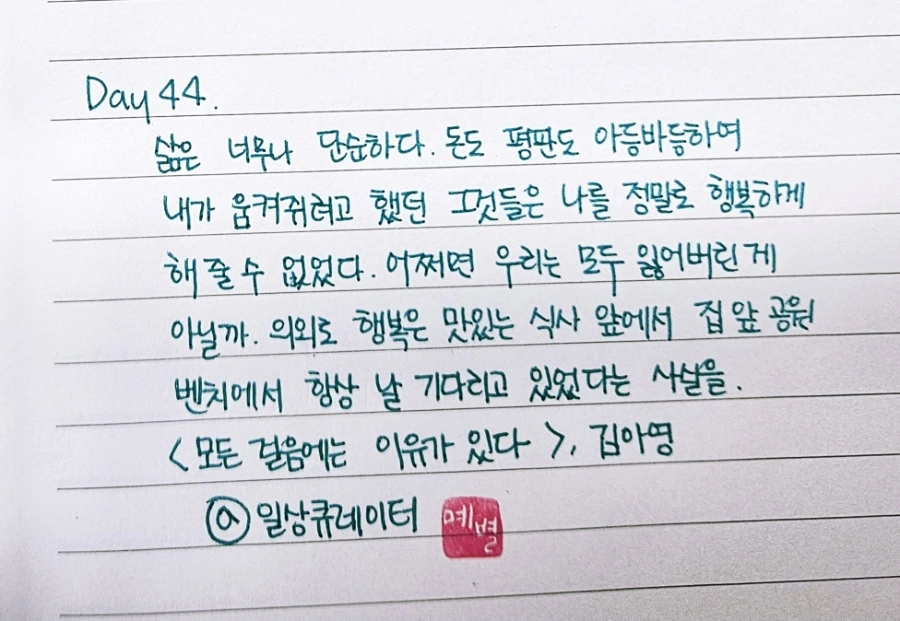 Day 44.
삶은 너무나 단순하다. 돈도 평판도 아등바등하여
내가 움켜쥐려고 했던 그것들은 나를 정말로 행복하게
해 줄 수 없었다. 어쩌면 우리는 모두 잃어버린 게
아닐까. 의외로 행복은 맛있는 식사 앞에서 집 앞 공원
벤치에서 항상 날 기다리고 있었다는 사실을.
<모든 걸음에는 이유가 있다>, 김아영
@일상큐레이터
예별